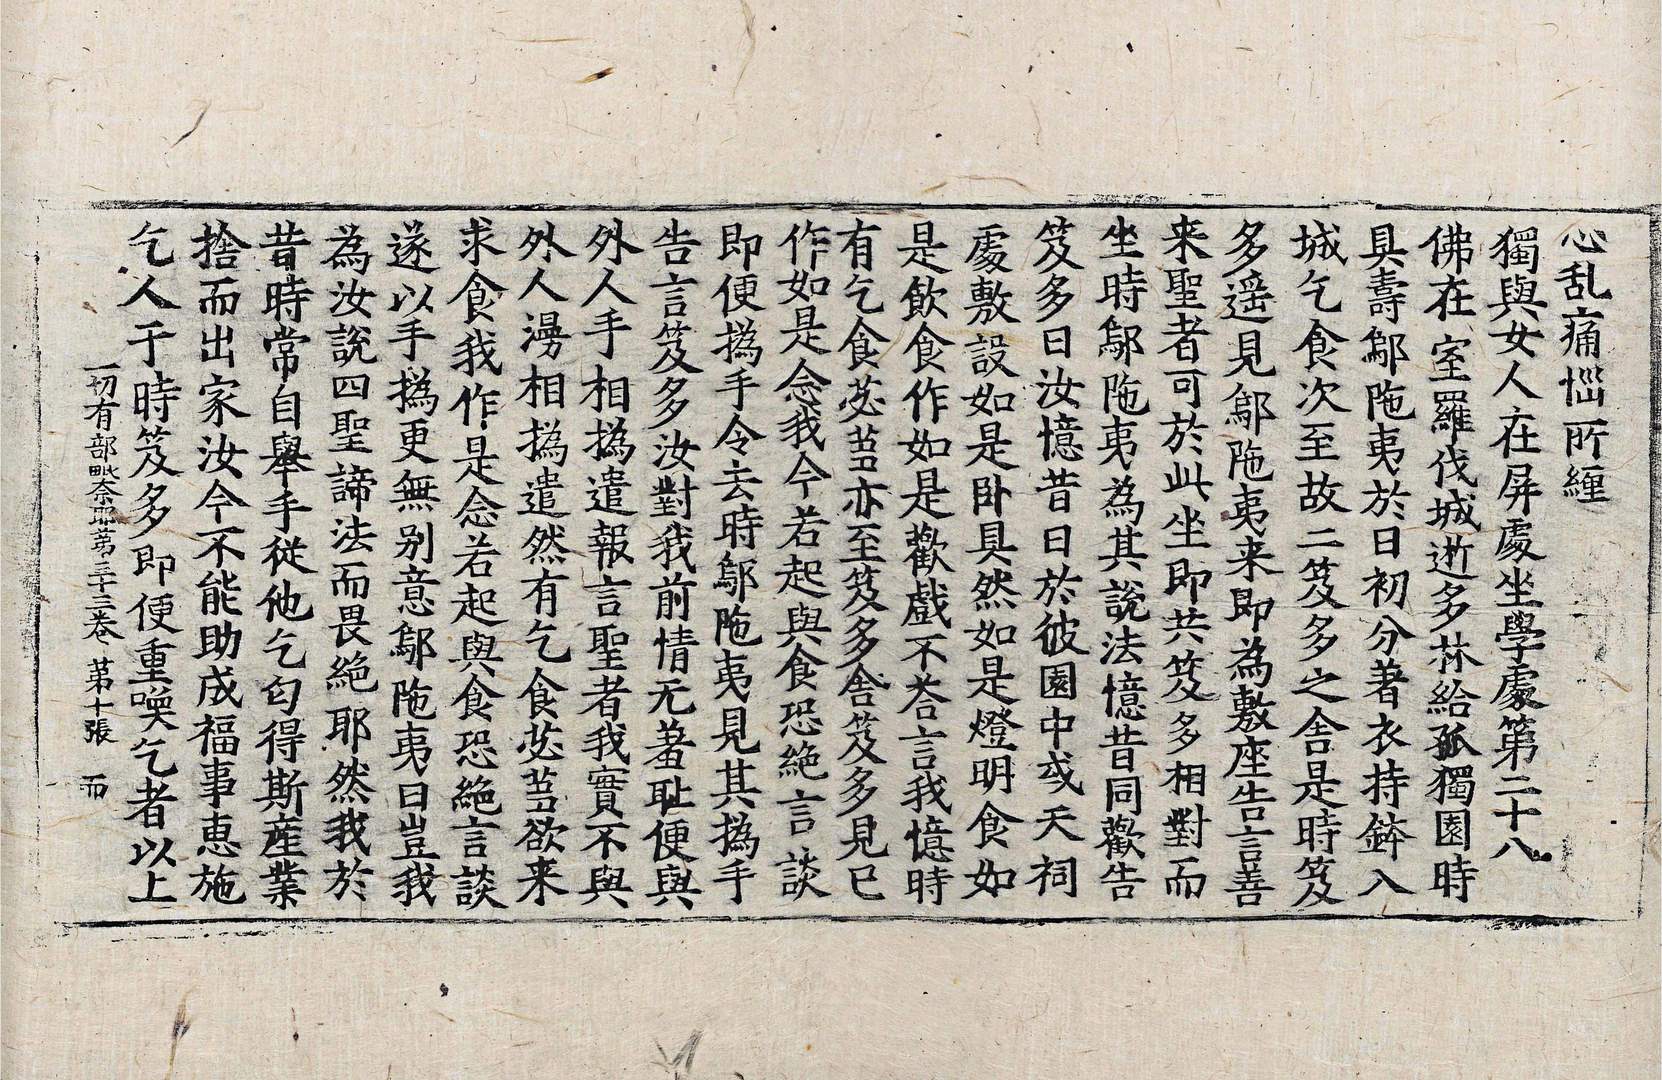 心乱痛惱所纏
獨與女人在屏處坐學處第二十八
佛在室羅伐城逝多林給孤獨園時
具壽鄔陁夷於日初分著衣持鉢入
城乞食次至故二笈多之舍是時笈
多遥見鄔陁夷来即為敷座告言善
来聖者可於此坐即共笈多相對而
坐時鄔陁夷為其說法憶昔同歡告
笈多曰汝憶昔日於彼園中或天祠
處敷設如是卧具然如是燈明食如
是飲食作如是歡戲不荅言我憶時
有乞食苾芻亦至笈多舍笈多見已
作如是念我今若起與食恐絶言談
即便撝手令去時鄔陁夷見其撝手
告言笈多汝對我前情无羞耻便與
外人手相撝遣報言聖者我實不與
外人漫相撝遣然有乞食苾芻欲来
求食我作是念若起與食恐絶言談
遂以手撝更無别意鄔陁夷曰豈我
為汝說四聖諦法而畏絶耶然我於
昔時常自舉手從他乞匄得斯產業
捨而出家汝今不能助成福事恵施
乞人于時笈多即便重喚乞者以上
一切有部毗奈耶第三十三卷 第十張 而